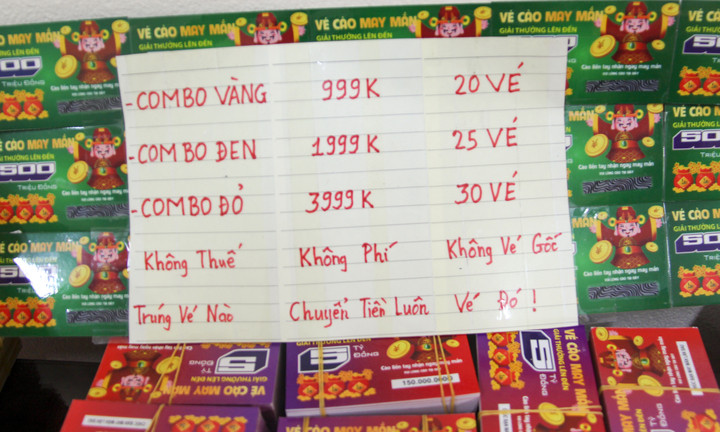 VÉ CÀO MAY MẮN
GIẢI THƯỞNG LÊN ĐẾN
500
TRIỆU ĐỒNG
Cào liền tay nhận ngay may mắn
- COMBO VÀNG 999K 20 VÉ
- COMBO ĐEN 1999K 25 VÉ
- COMBO ĐỎ 3999K 30 VÉ
Không Thuế Không Phí Không Vé Gốc
Trúng Vé Nào Chuyển Tiền Luôn Vé Đó !
VÉ CÀO MAY MẮN
GIẢI THƯỞNG LÊN ĐẾN
5
TỶ
ĐỒNG
150.000.000Đ